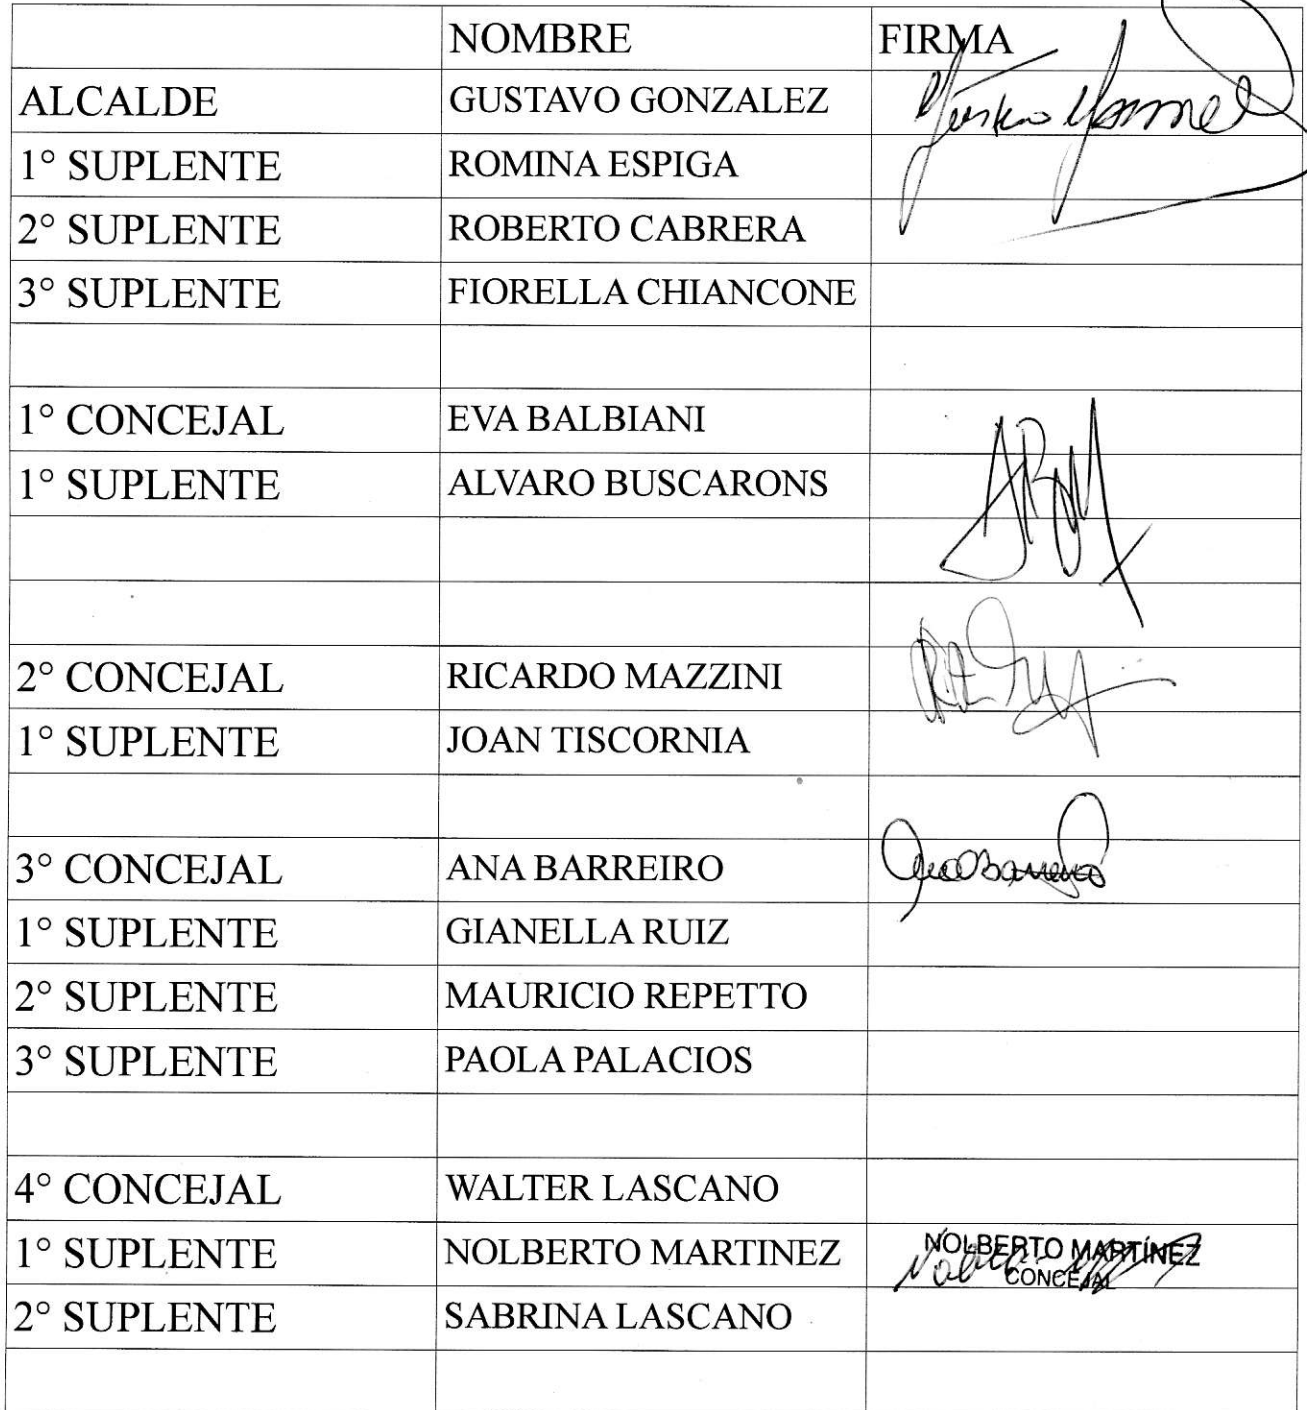 NOMBRE FIRMA
ALCALDE GUSTAVO GONZALEZ
1° SUPLENTE ROMINA ESPIGA
2° SUPLENTE ROBERTO CABRERA
3° SUPLENTE FIORELLA CHIANCONE
1° CONCEJAL EVA BALBIANI
1° SUPLENTE ALVARO BUSCARONS
2° CONCEJAL RICARDO MAZZINI
1° SUPLENTE JOAN TISCORNIA
3° CONCEJAL ANA BARREIRO
1° SUPLENTE GIANELLA RUIZ
2° SUPLENTE MAURICIO REPETTO
3° SUPLENTE PAOLA PALACIOS
4° CONCEJAL WALTER LASCANO
1° SUPLENTE NOLBERTO MARTINEZ NOLBERTO MARTÍNEZ
CONCEJAL
2° SUPLENTE SABRINA LASCANO